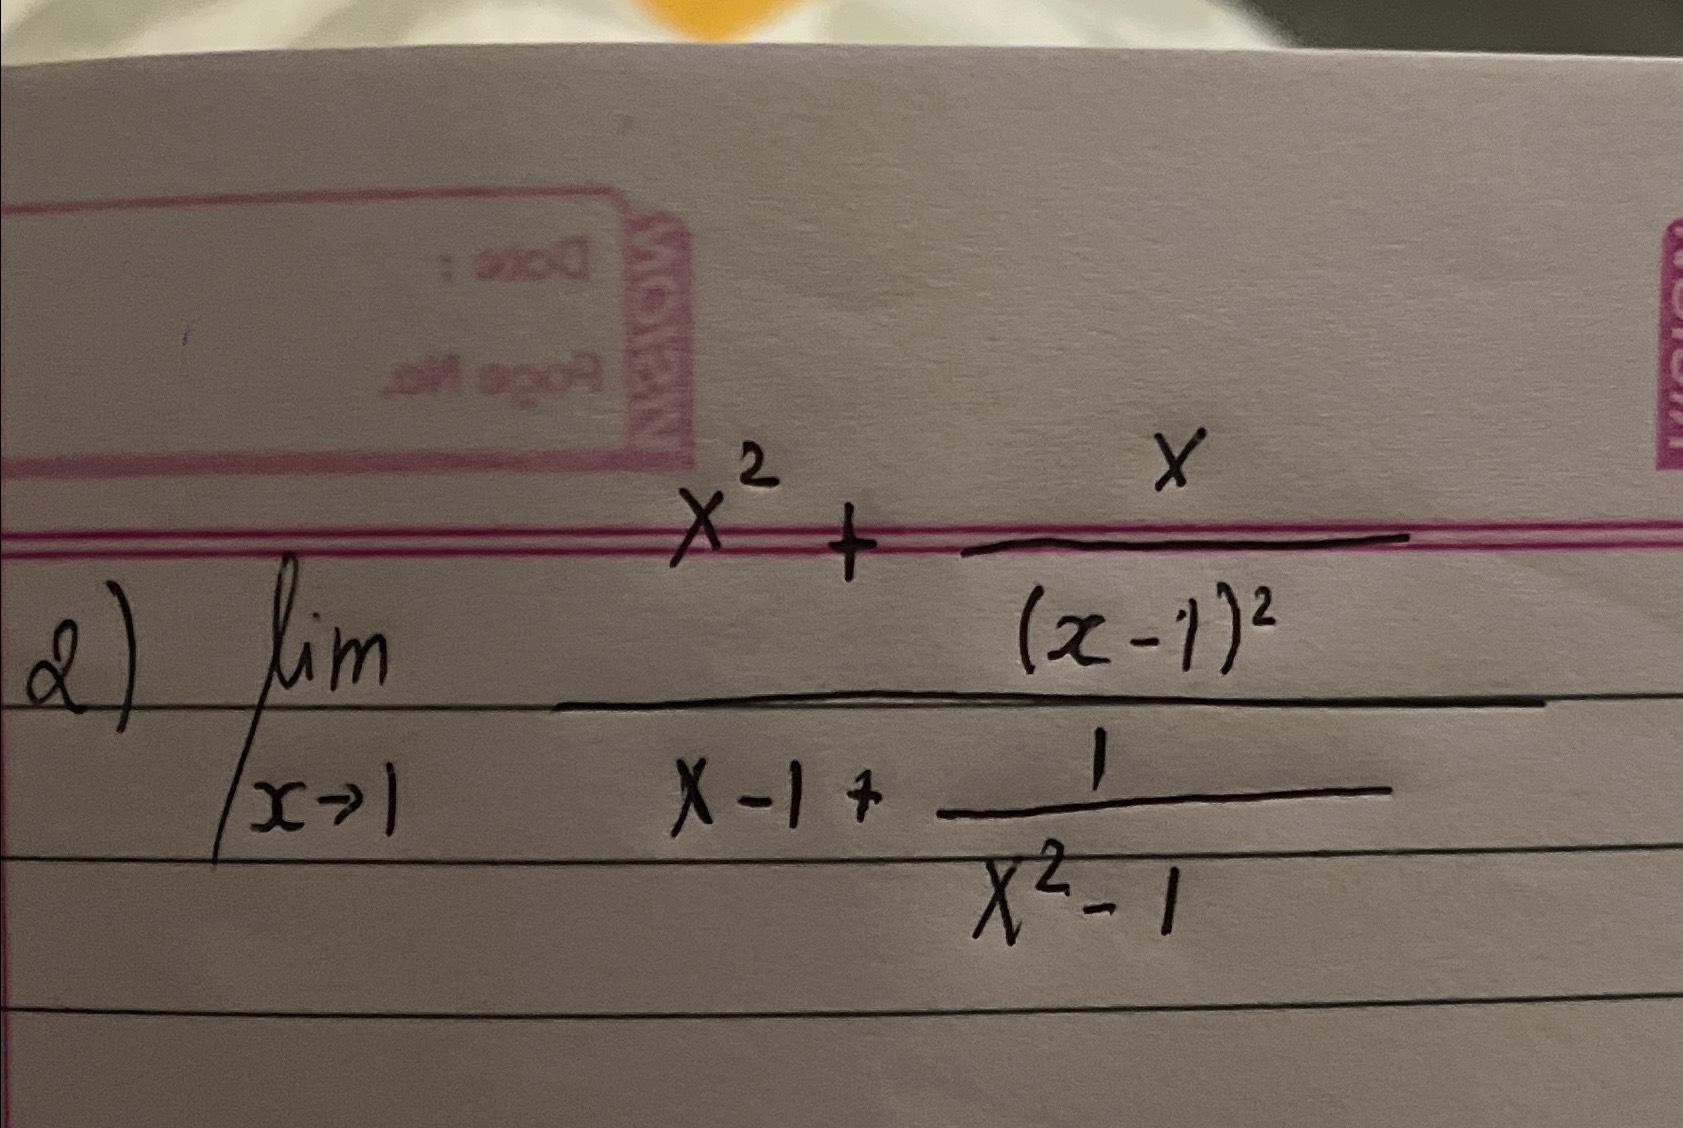 Date :
Page No.
2) lim x→1 (x² + x/(x-1)²) / (x-1 + 1/(x²-1))